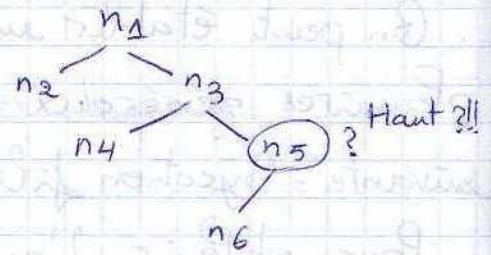 n1
n2 n3
n4 n5 ? Haut ?!!
n6